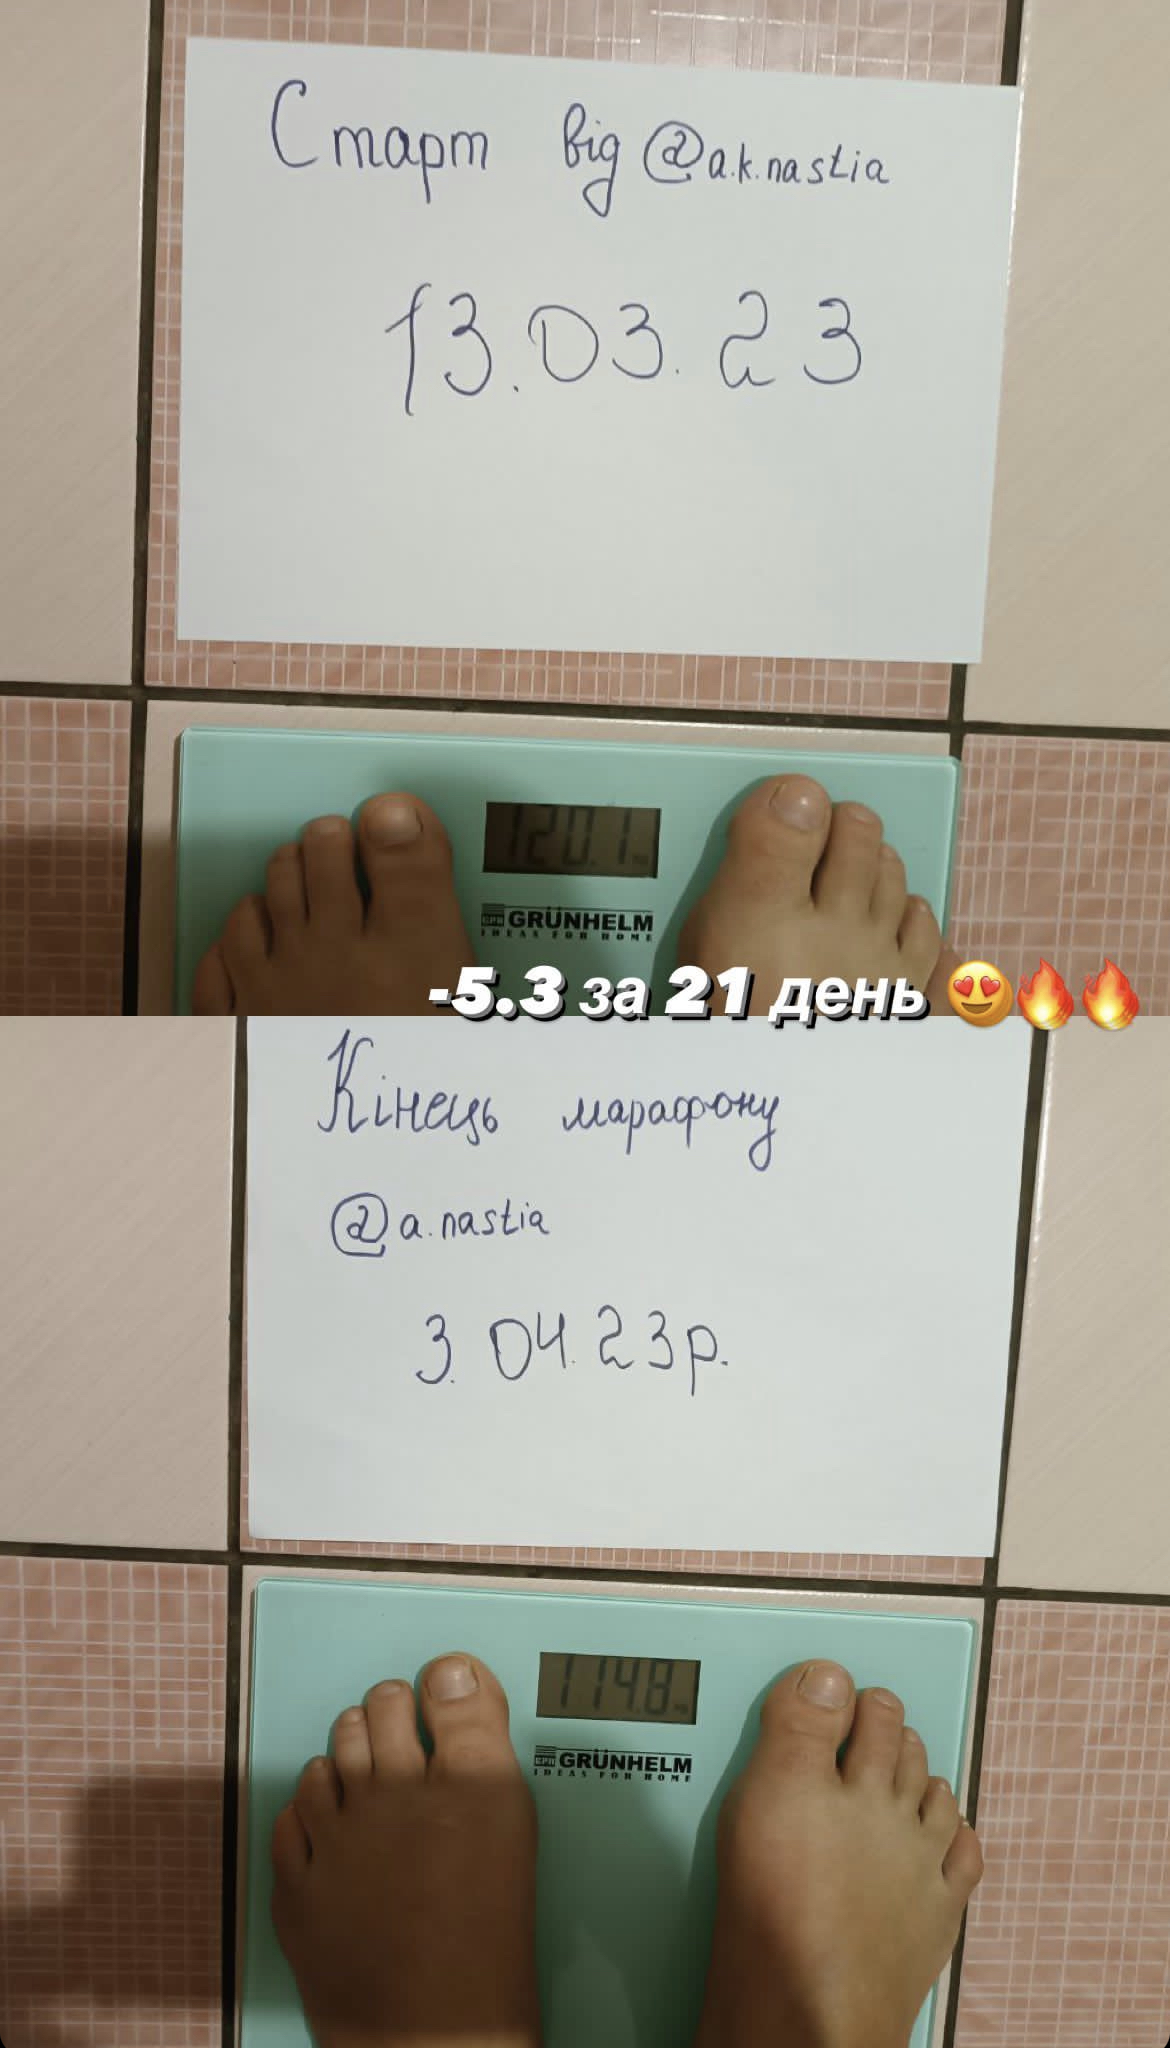 Старт від @a.k.nastia
13.03.23
120.1
GPH GRÜNHELM
IDEAS FOR HOME
-5.3 за 21 день 😍🔥🔥
Кінець марафону
@a.nastia
3.04.23р.
114.8
GPH GRÜNHELM
IDEAS FOR HOME